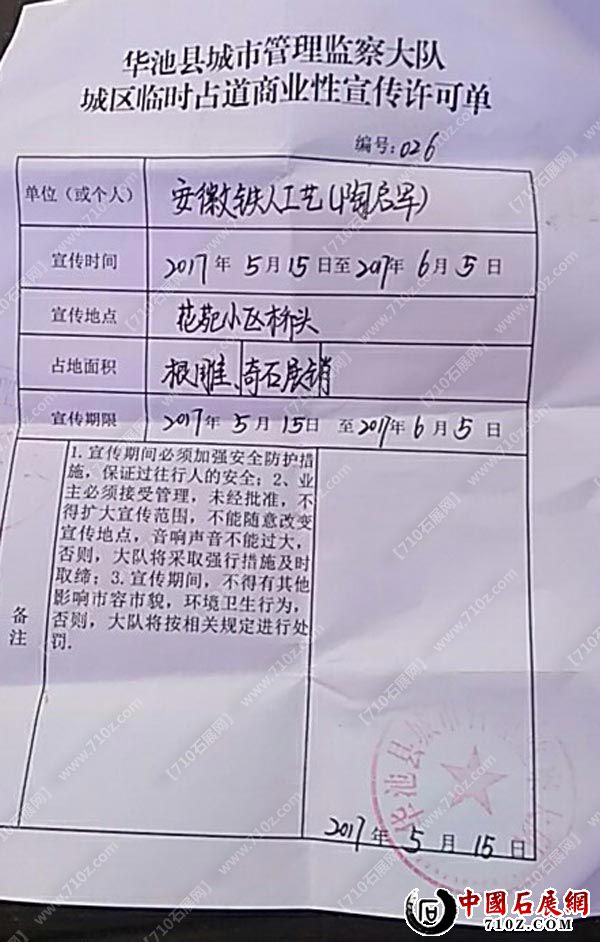 华池县城市管理监察大队
城区临时占道商业性宣传许可单
编号:026
单位(或个人) 安徽铁人工艺(陶启军)
宣传时间 2017年5月15日至2017年6月5日
宣传地点 花苑小区桥头
占地面积 根雕、奇石展销
宣传期限 2017年5月15日 至2017年6月5日
备注
1.宣传期间必须加强安全防护措
施,保证过往行人的安全;2、业
主必须接受管理,未经批准,不
得扩大宣传范围,不能随意改变
宣传地点,音响声音不能过大,
否则,大队将采取强行措施及时
取缔;3.宣传期间,不得有其他
影响市容市貌,环境卫生行为,
否则,大队将按相关规定进行处
罚.
华池县城市管
2017年5月15日
中國石展網
710Z.COM
【710石展网】
www.710z.com